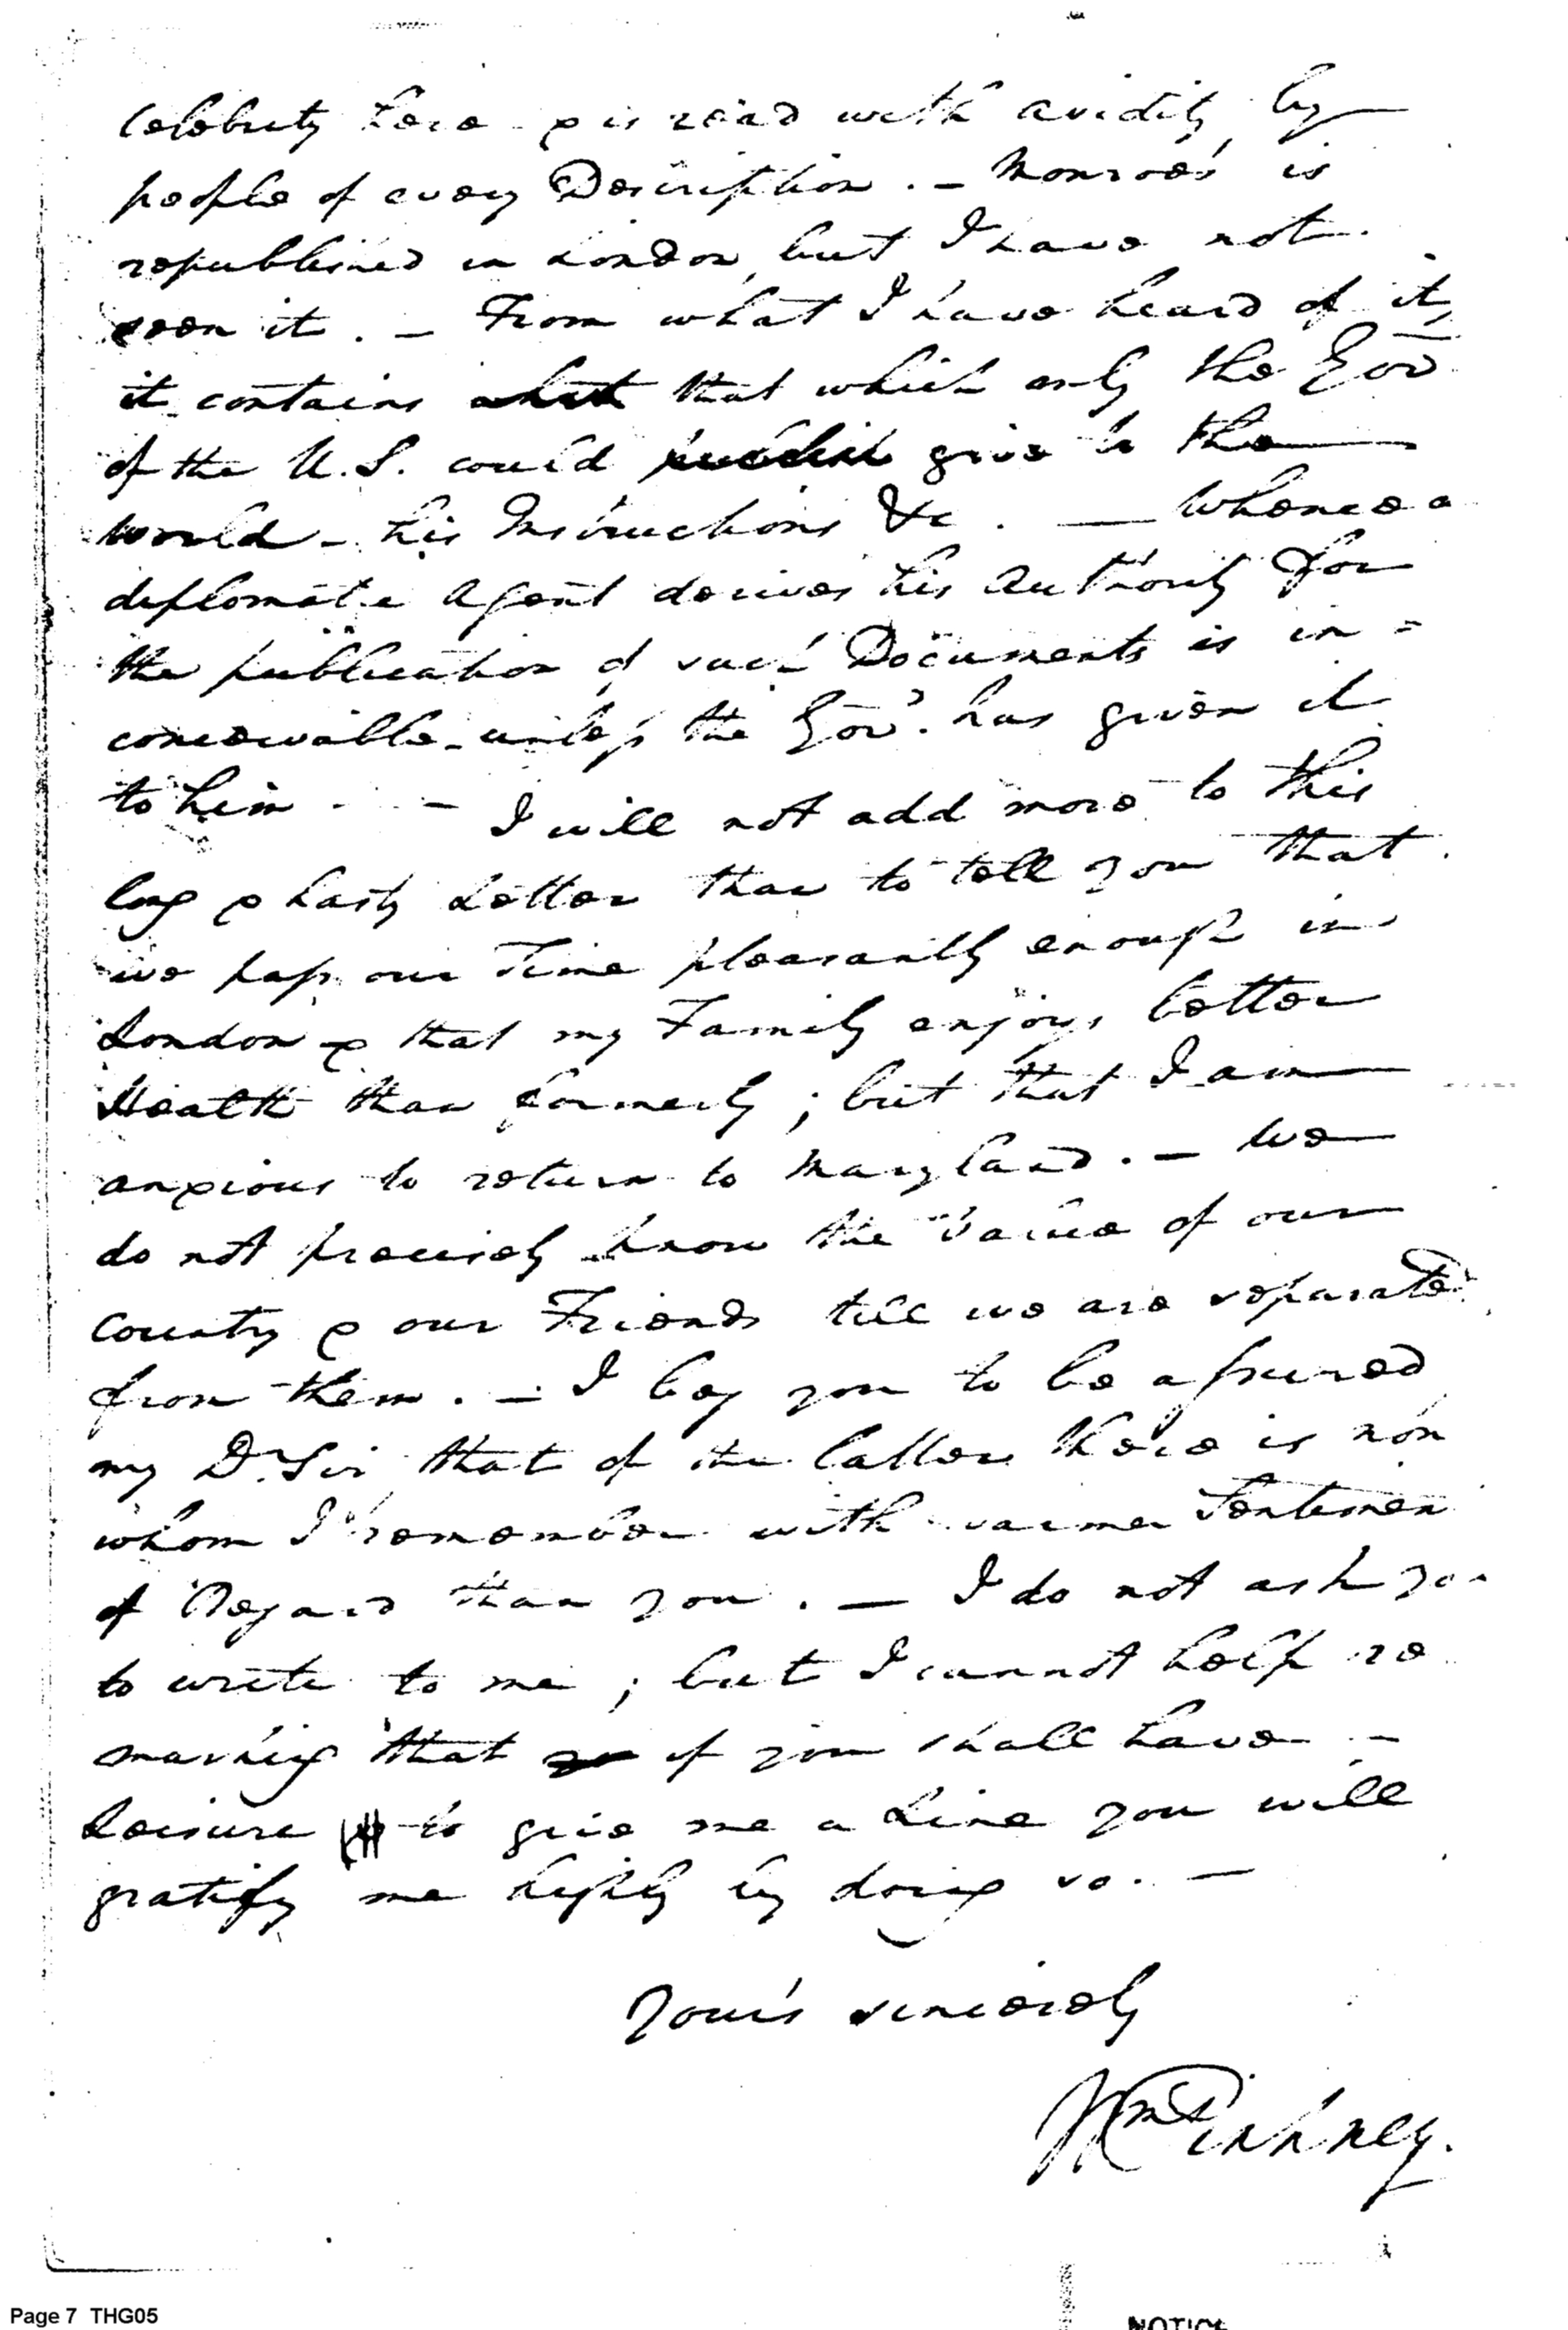 Celebrity here & is read with avidity by
people of every Description. — Monroe's is
republished in London, but I have not
seen it. — From what I have heard of it,
it contains that which only the Gov^t
of the U.S. could give to the
world — his Instructions &c. — Whence a
diplomatic Agent derives his Authority for
the publication of such Documents is in=
conceivable unless the Gov^t. has given it
to him. — I will not add more to this
long & hasty Letter than to tell you that
we pass our Time pleasantly enough in
London & that my Family enjoys better
Health than formerly; but that I am
anxious to return to Maryland. — We
do not precisely know the Value of our
Country & our Friends till we are separated
from them. — I beg you to be assured
my D^r Sir that of the latter there is non
whom I remember with warmer Sentimen
of Regard than you. — I do not ask you
to write to me; but I cannot help re
marking that if you shall have —
Leisure to give me a Line you will
gratify me highly by doing so. —
Your's sincerely
W^m Pinkney.
Page 7 THG05
NOTICE